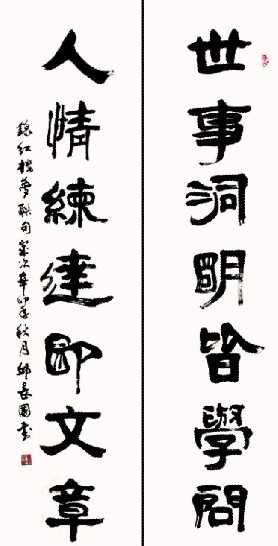 世事洞明皆學問
人情練達即文章
錄紅樓夢聯句歲次辛卯年秋月邱